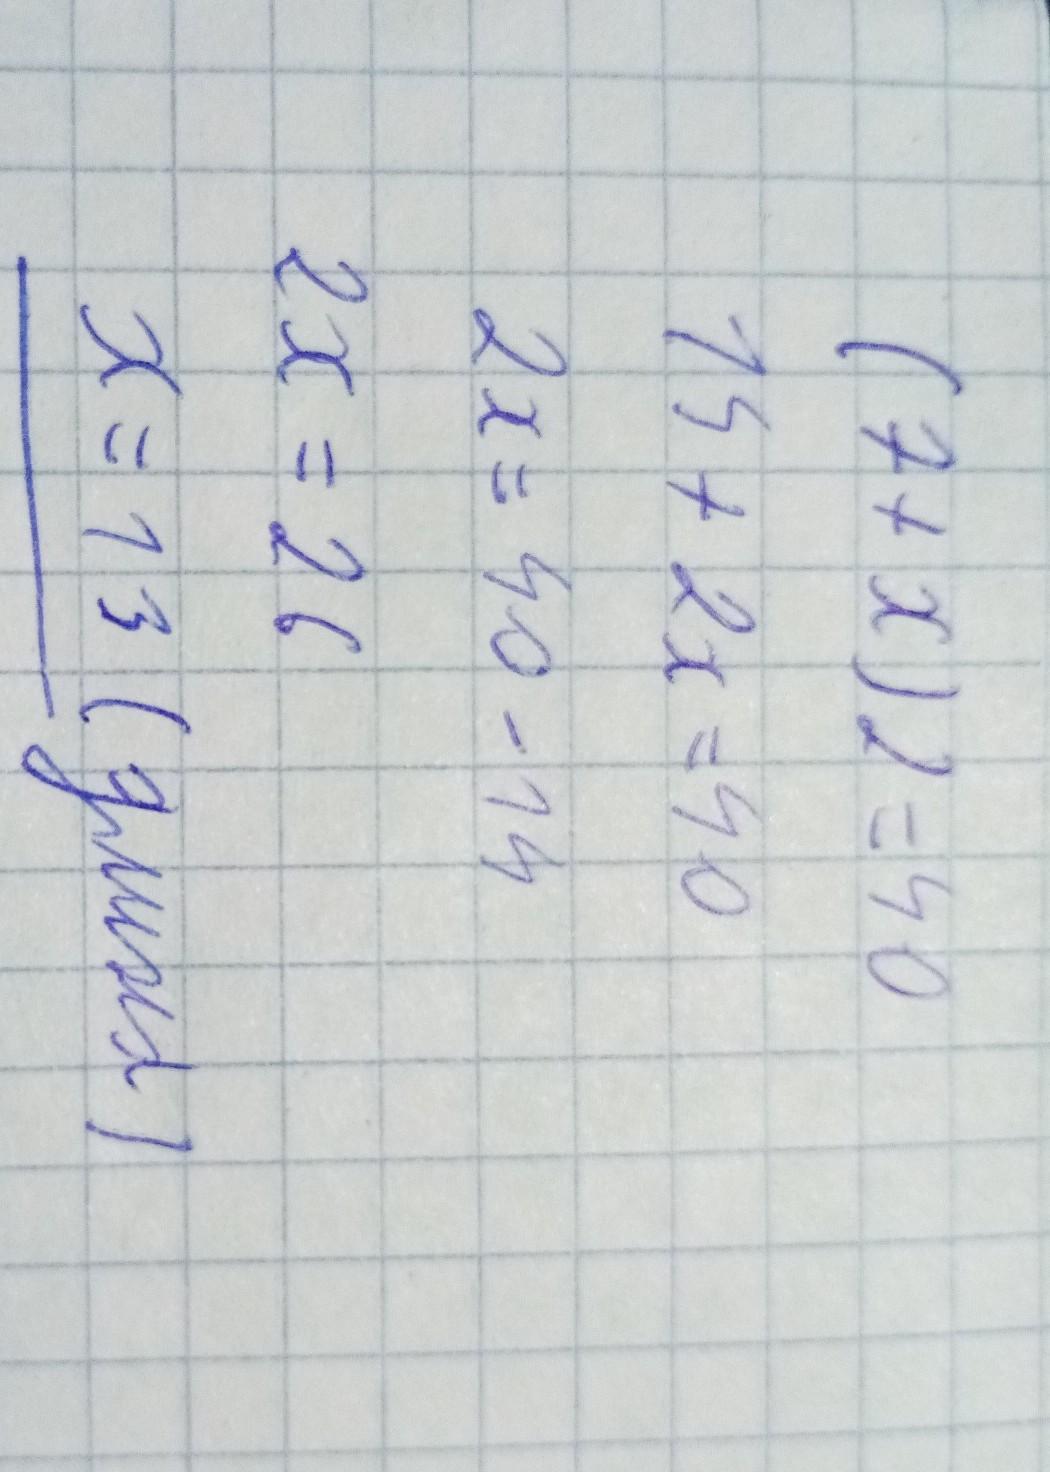 (7+x)2=40
14+2x=40
2x=40-14
2x=26
x=13 (длина)